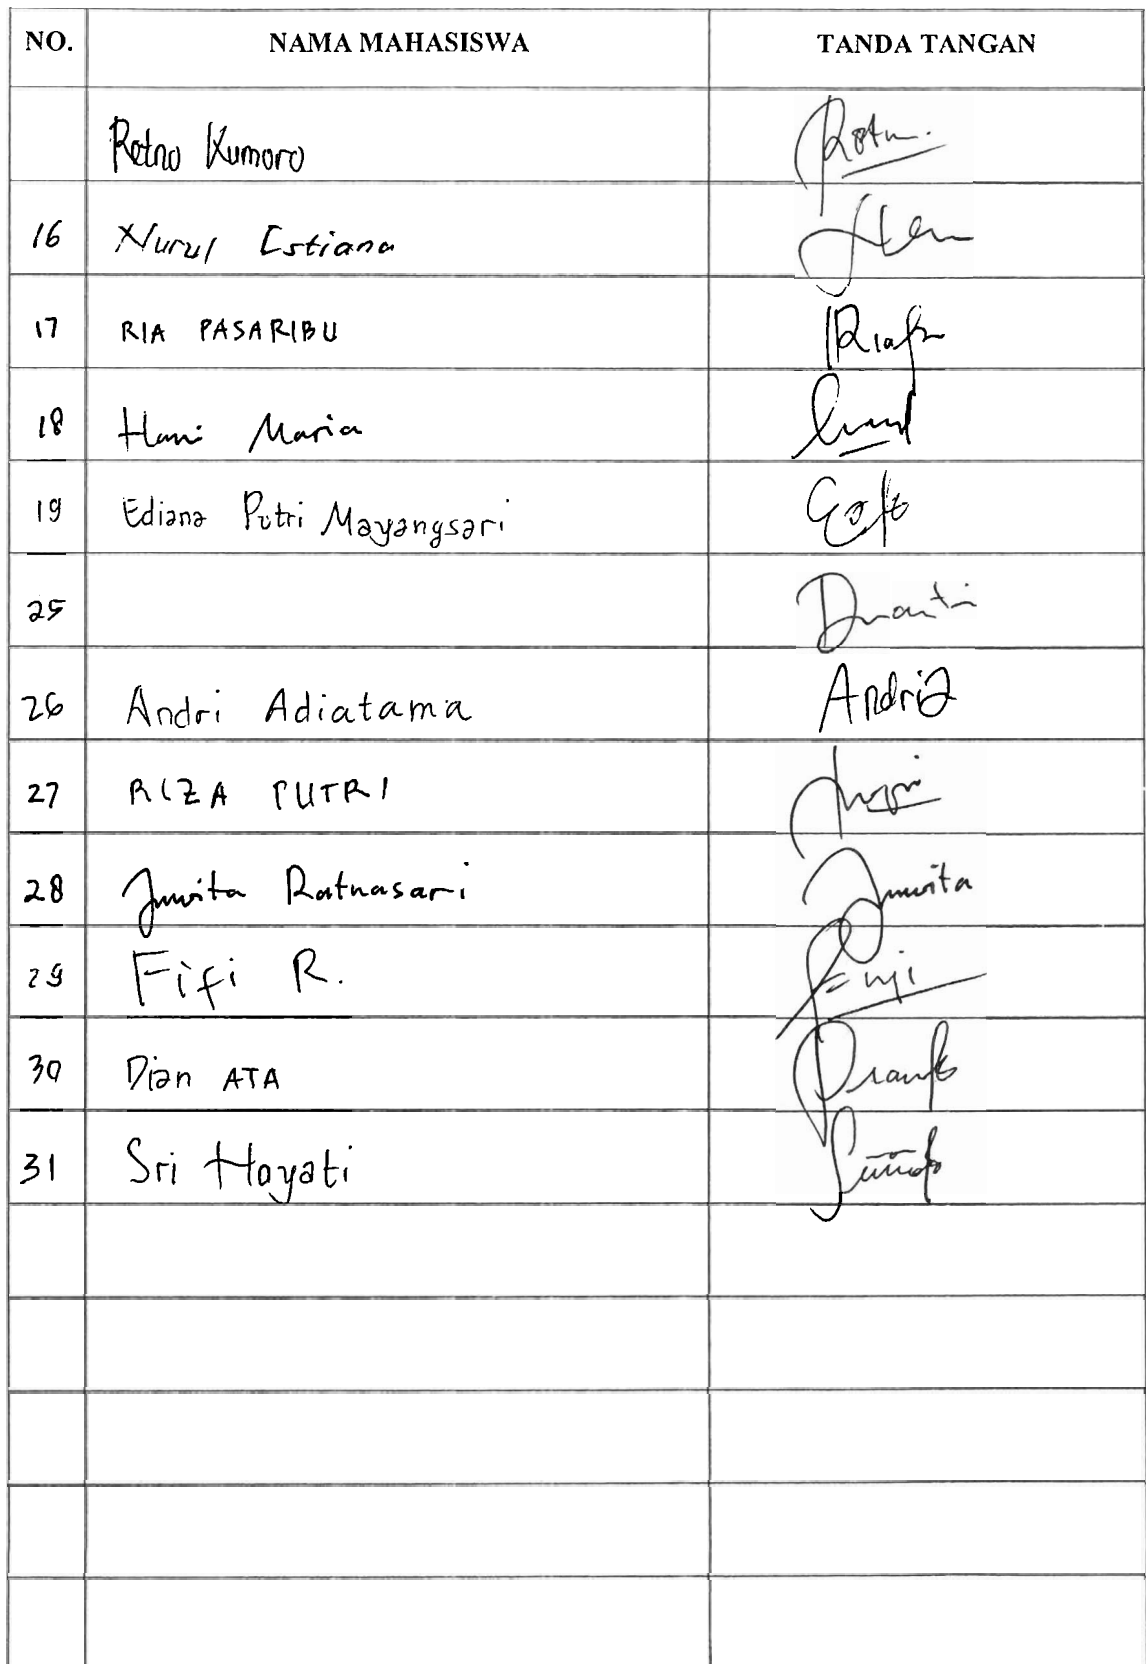 NO. NAMA MAHASISWA TANDA TANGAN
Retno Kumoro Rotn.
16 Nurul Estiana
17 RIA PASARIBU Ria
18 Hani Maria
19 Ediana Putri Mayangsari
25
26 Andri Adiatama Andri
27 RIZA PUTRI
28 Juwita Ratnasari Juwita
29 Fifi R.
30 Dian ATA
31 Sri Hayati